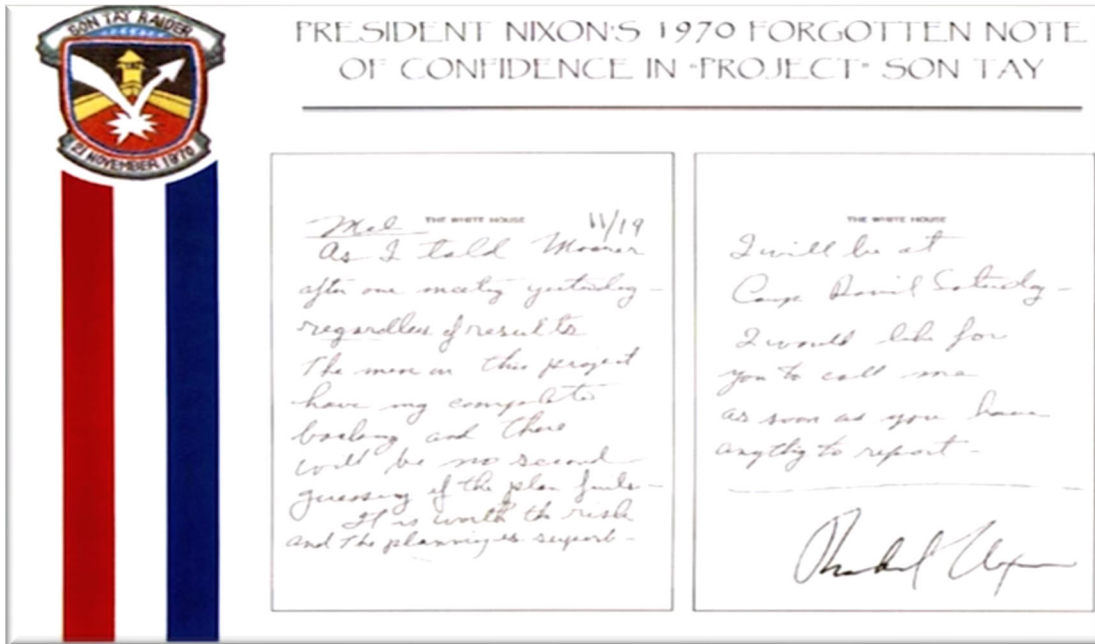 SON TAY RAIDER
21 NOVEMBER 1970
PRESIDENT NIXON'S 1970 FORGOTTEN NOTE
OF CONFIDENCE IN "PROJECT" SON TAY
THE WHITE HOUSE
Mel 11/19
As I told Moorer
after our meeting yesterday -
regardless of results
The men on this project
have my complete
backing and there
will be no second
guessing if the plan fails -
It is worth the risk
and the planning is superb -
THE WHITE HOUSE
I will be at
Camp David Saturday -
I would like for
you to call me
as soon as you have
anything to report -
Richard Nixon